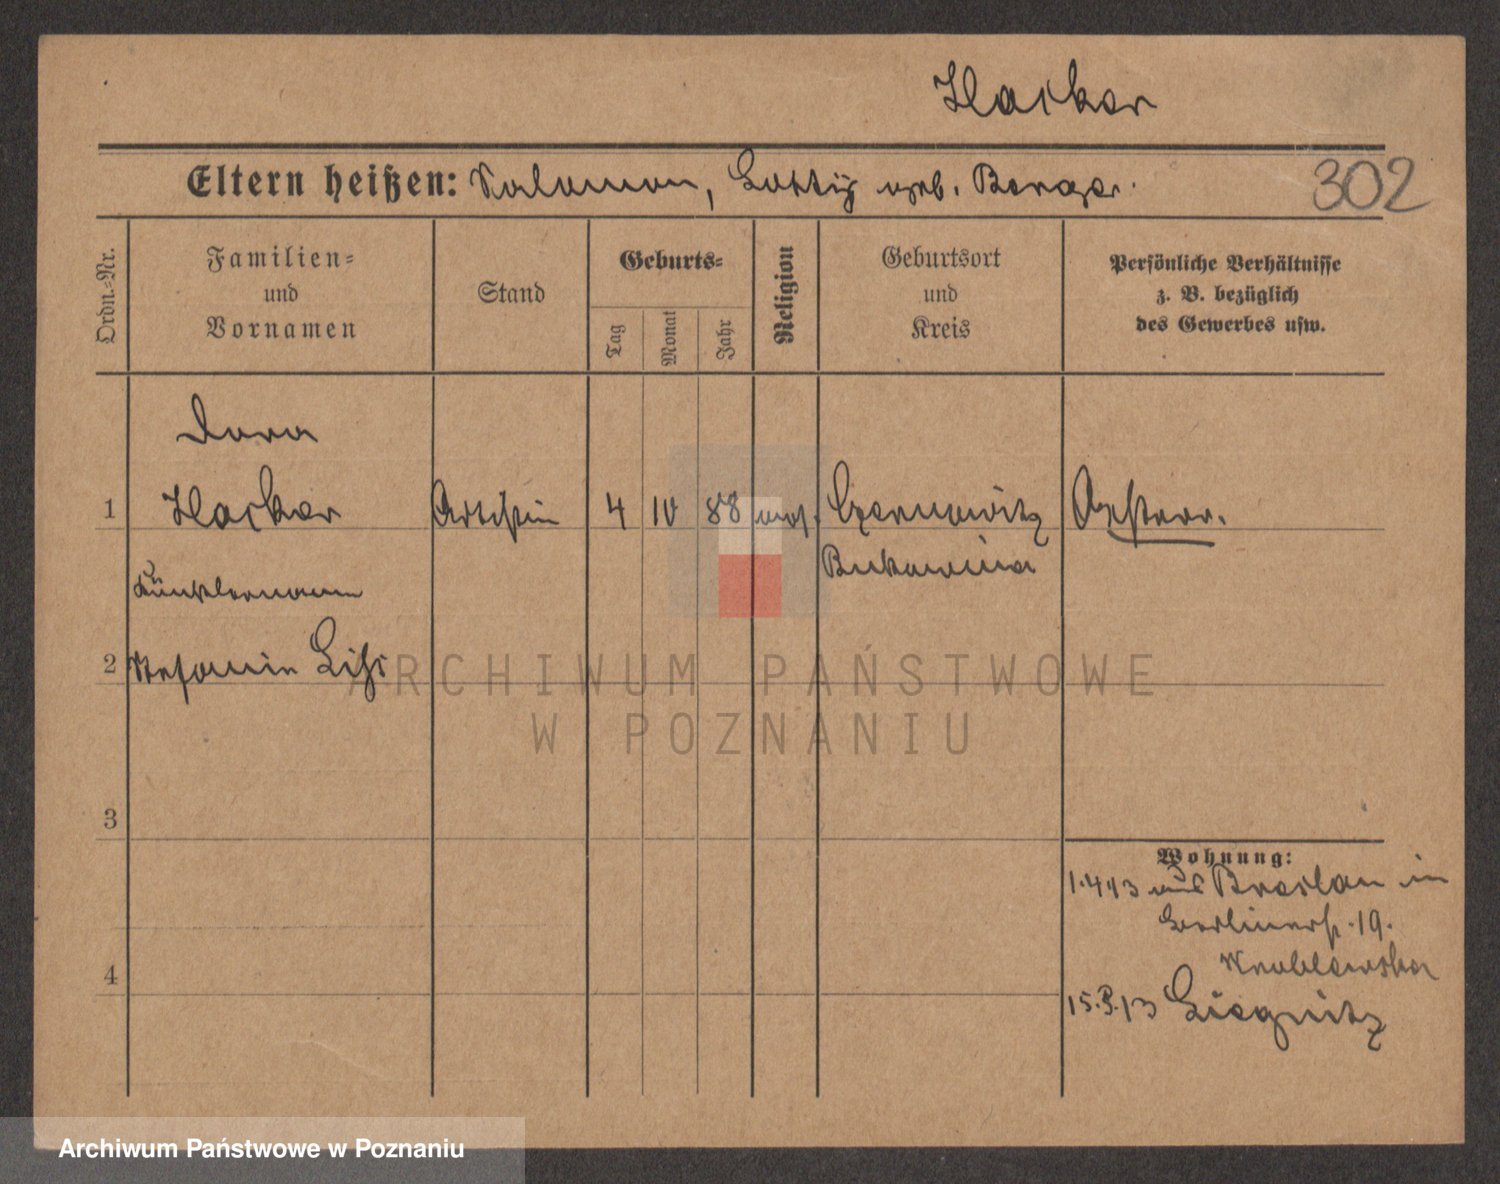 Hacker
Eltern heißen: Salomon, Lotty geb. Berger.
302
Ordn.-Nr.
Familien-
und
Vornamen
Stand
Geburts-
Tag
Monat
Jahr
Religion
Geburtsort
und
Kreis
Persönliche Verhältnisse
z. B. bezüglich
des Gewerbes usw.
Dora
1 Hacker Artistin 4 10 88 mos. Czernowitz Oesterr.
Bukowina
Künstlername
2 Stefanie
3
4
Wohnung:
1.4.13 aus Breslau in
Berlinerstr. 19.
15. 13 Liegnitz
ARCHIWUM PAŃSTWOWE
W POZNANIU
Archiwum Państwowe w Poznaniu